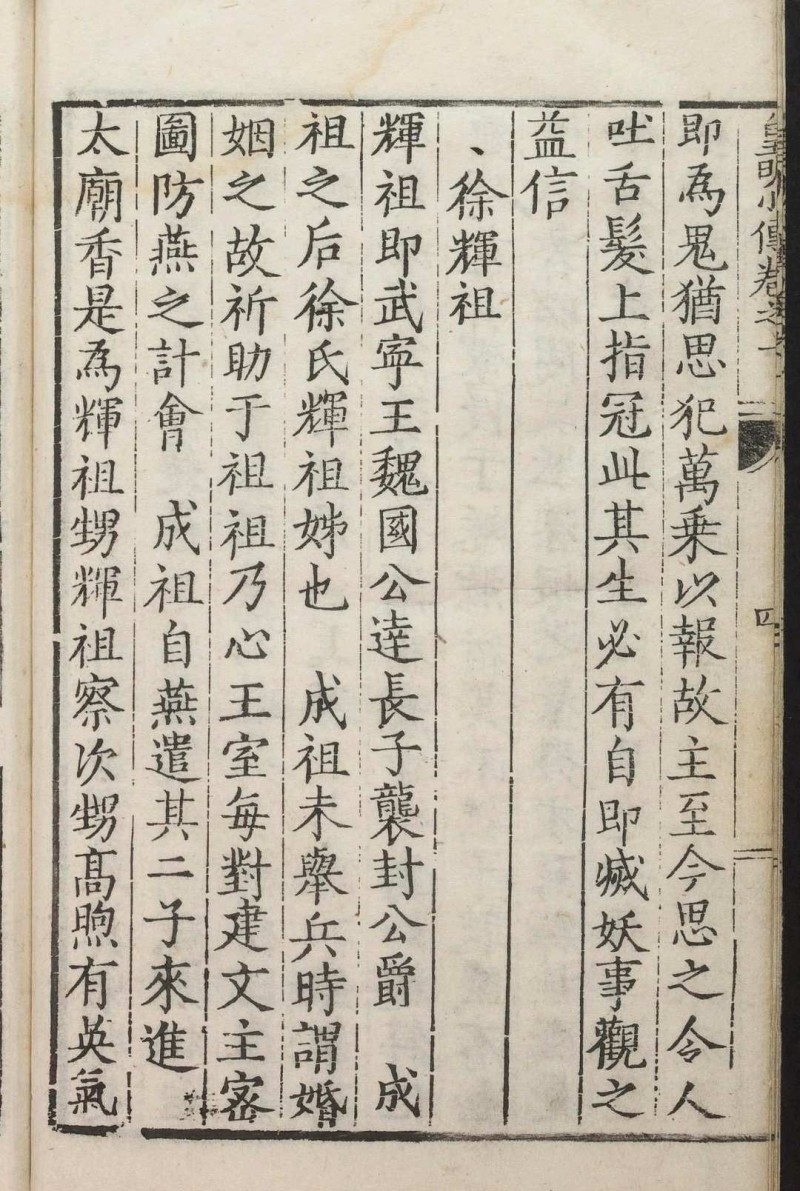 皇明小傳卷之一
四
即為鬼猶思犯萬乗以報故主至今思之令人
吐舌髮上指冠此其生必有自即滅妖事觀之
益信
、徐輝祖
輝祖即武寧王魏國公逹長子襲封公爵　成
祖之后徐氏輝祖姊也　成祖未舉兵時謂婚
姻之故祈助于祖祖乃心王室毎對建文主密
圖防燕之計會　成祖自燕遣其二子來進
太廟香是為輝祖甥輝祖察次甥髙煦有英氣